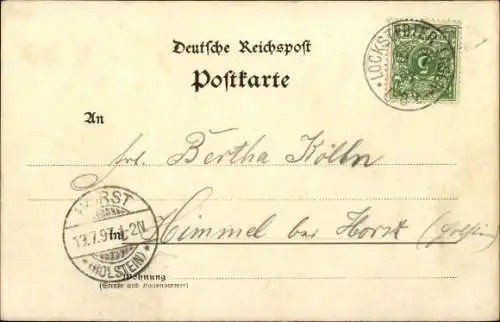 Deutsche Reichspost
Postkarte
LOCKSTEDTER
5
An
Frl. Bertha Kölln
HORST
13.7.97. 1-2N
(HOLSTEIN)
In
Himmel bei Horst (Holstein)
Wohnung
(Straße und Hausnummer)